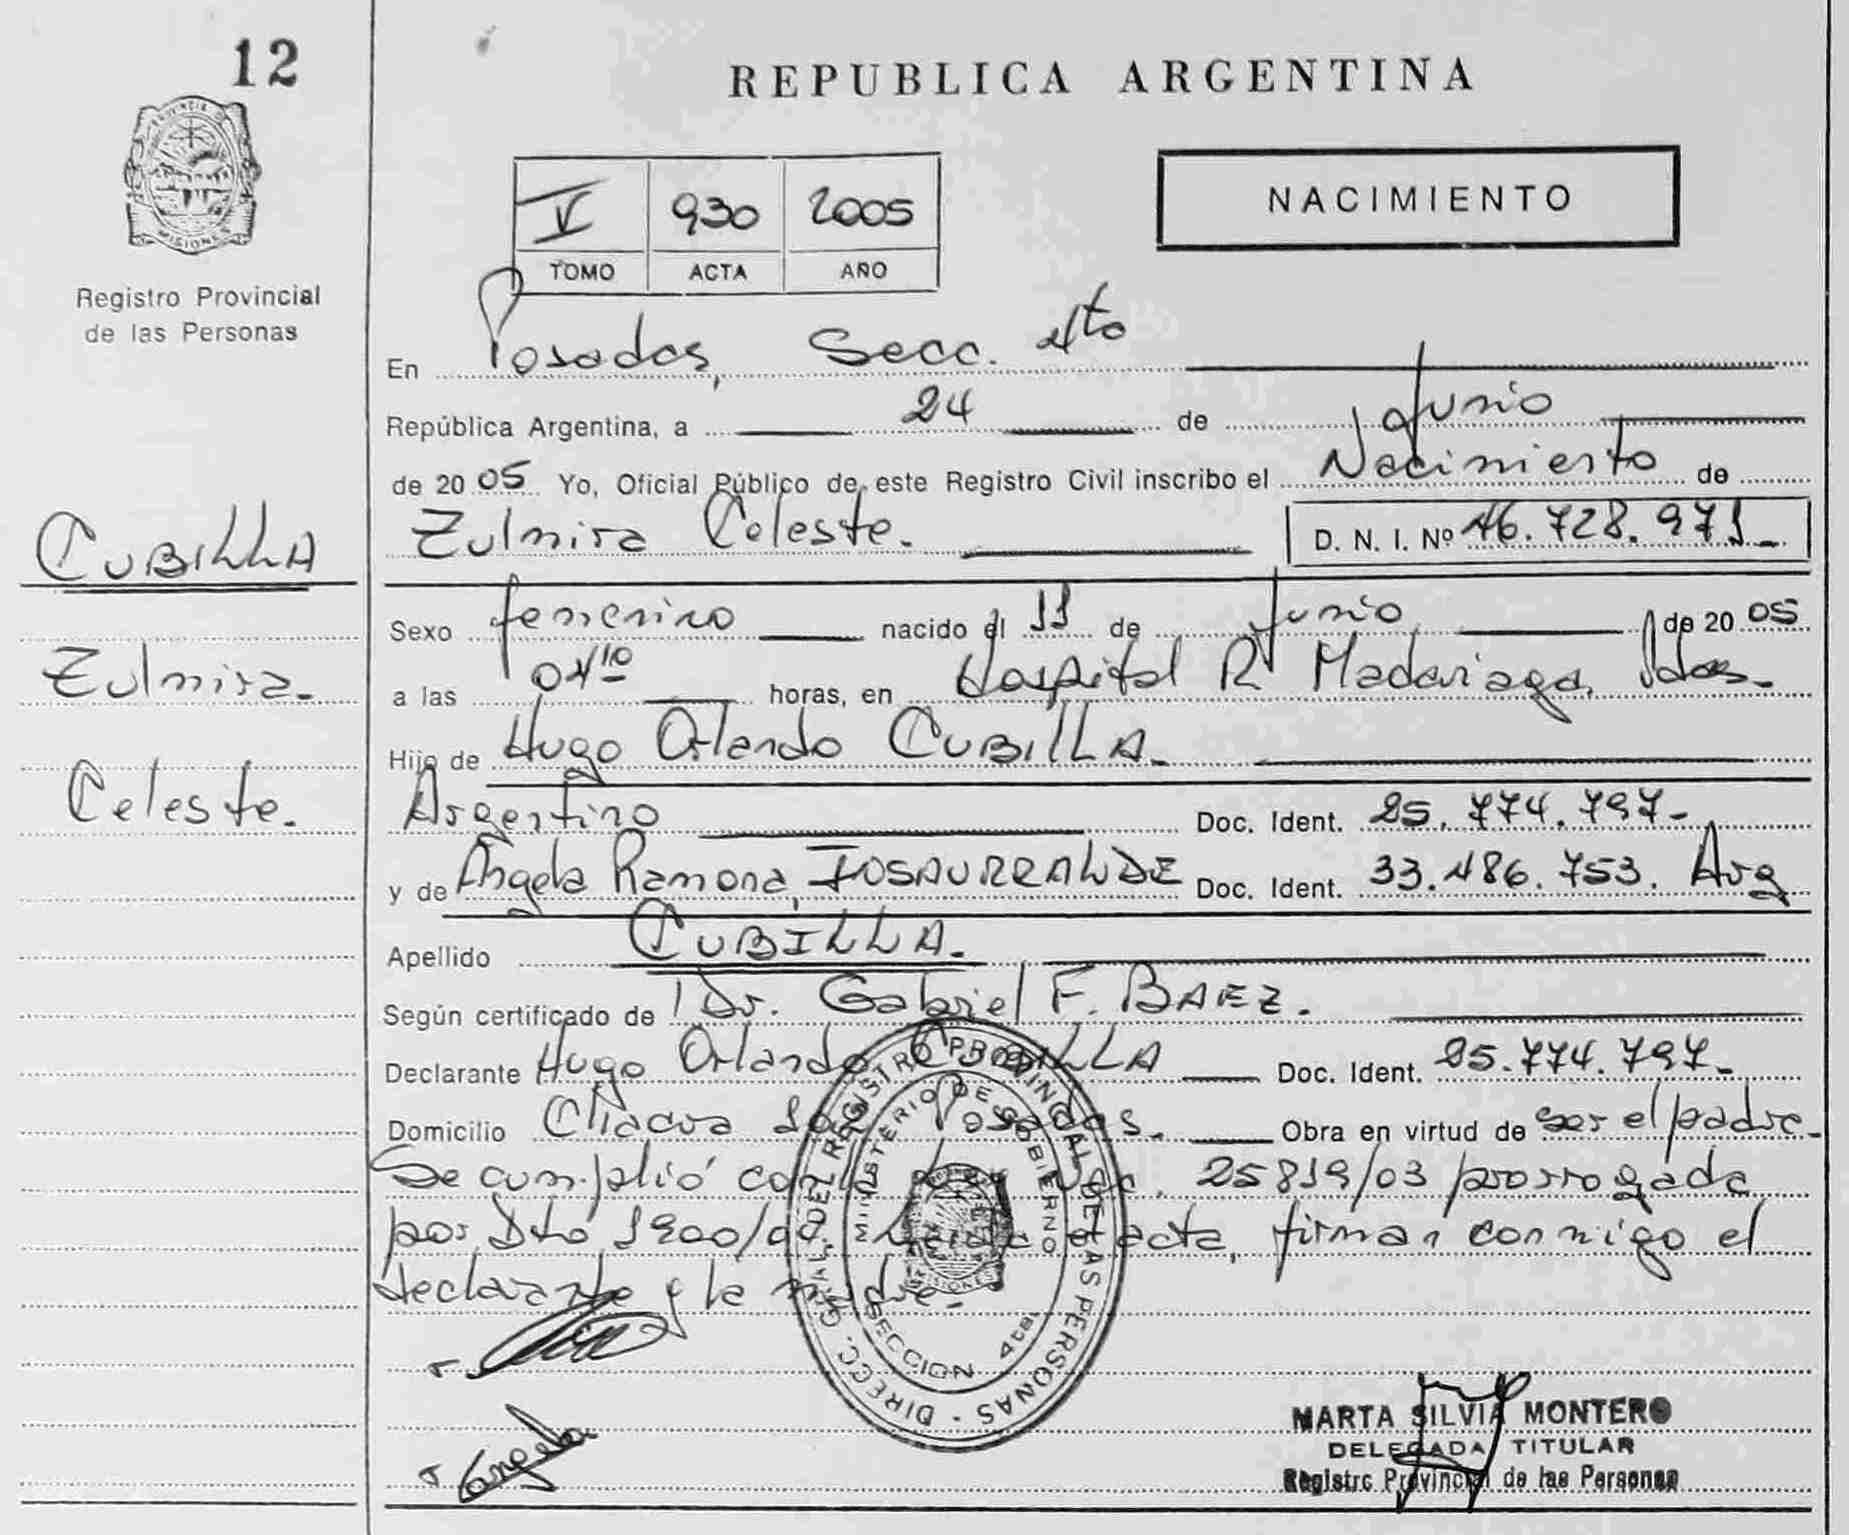 12
PROVINCIA
MISIONES
Registro Provincial
de las Personas
CUBILLA
Zulmira
Celeste.
REPUBLICA ARGENTINA
V 930 2005
TOMO ACTA AÑO
NACIMIENTO
En Posadas, Secc. 4to
República Argentina, a 24 de Junio
de 2005 Yo, Oficial Público de este Registro Civil inscribo el Nacimiento de
Zulmira Celeste. D. N. I. Nº 46.728.971
Sexo femenino nacido el 11 de Junio de 2005
a las 04 10 horas, en Hospital R Madariaga, Pdas.
Hijo de Hugo Orlando CUBILLA.
Argentino Doc. Ident. 25.774.797-
y de Angela Ramona, INSAURRALDE Doc. Ident. 33.486.753. Arg
Apellido CUBILLA.
Según certificado de Dr. Gabriel F. BAEZ.
Declarante Hugo Orlando CUBILLA Doc. Ident. 25.774.797-
Domicilio Chacra Posadas. Obra en virtud de ser el padre.
Se cumplió con la Ley Nac. 25819/03 prorrogada
por Dto 1900/04. Leída el acta, firman conmigo el
declarante y la madre.
DIRECC. GRAL. DEL REGISTRO PROVINCIAL DE LAS PERSONAS
MINISTERIO DE GOBIERNO
MISIONES
SECCION 4ta.
Angela
MARTA SILVIA MONTERO
DELEGADA TITULAR
Registro Provincial de las Personas